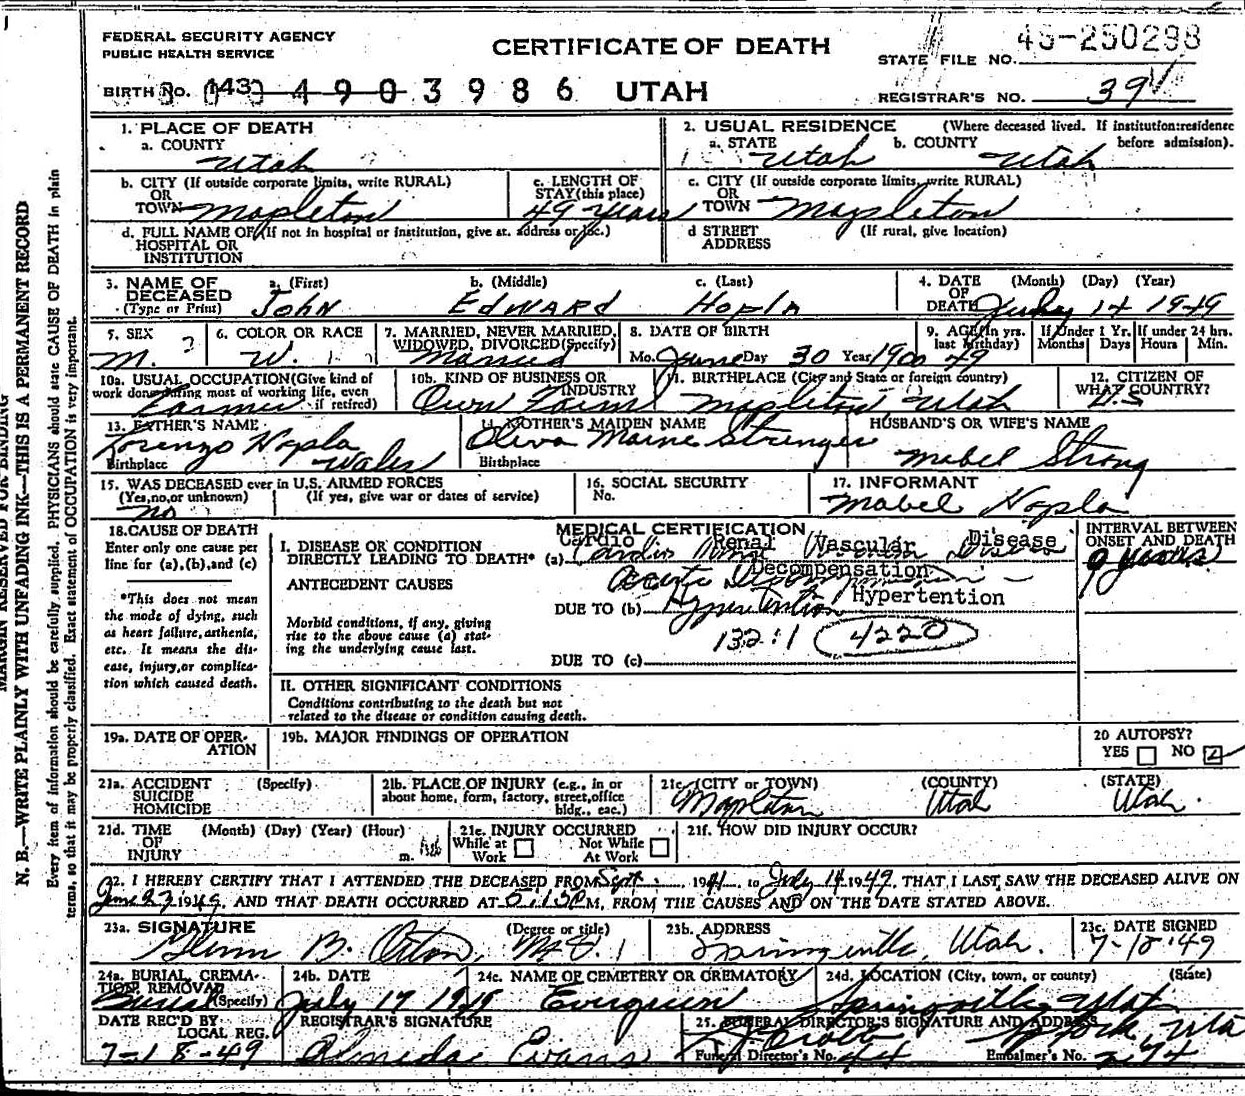 FEDERAL SECURITY AGENCY
PUBLIC HEALTH SERVICE
CERTIFICATE OF DEATH
STATE FILE NO. 45-250298
BIRTH NO. 143 4 9 0 3 9 8 6 UTAH
REGISTRAR'S NO. 39
MARGIN RESERVED FOR BINDING
N. B.—WRITE PLAINLY WITH UNFADING INK—THIS IS A PERMANENT RECORD
Every item of information should be carefully supplied. PHYSICIANS should state CAUSE OF DEATH in plain
terms, so that it may be properly classified. Exact statement of OCCUPATION is very important.
1. PLACE OF DEATH
a. COUNTY Utah
2. USUAL RESIDENCE (Where deceased lived. If institution:residence
before admission).
a. STATE Utah b. COUNTY Utah
b. CITY (If outside corporate limits, write RURAL)
OR
TOWN Mapleton
c. LENGTH OF
STAY(this place)
49 years
c. CITY (If outside corporate limits, write RURAL)
OR
TOWN Mapleton
d. FULL NAME OF (If not in hospital or institution, give st. address or loc.)
HOSPITAL OR
INSTITUTION
d STREET (If rural, give location)
ADDRESS
3. NAME OF DECEASED
(Type or Print)
a. (First) b. (Middle) c. (Last)
John Edward Hopla
4. DATE OF DEATH (Month) (Day) (Year)
July 14 1949
5. SEX
M.
6. COLOR OR RACE
W.
7. MARRIED, NEVER MARRIED,
WIDOWED, DIVORCED(Specify)
Married
8. DATE OF BIRTH
Mo. June Day 30 Year 1900
9. AGE(In yrs.
last birthday)
49
If Under 1 Yr.
Months Days
If under 24 hrs.
Hours Min.
10a. USUAL OCCUPATION(Give kind of
work done during most of working life, even
if retired)
Farmer
10b. KIND OF BUSINESS OR
INDUSTRY
Own Farm
11. BIRTHPLACE (City and State or foreign country)
Mapleton Utah
12. CITIZEN OF
WHAT COUNTRY?
U.S
13. FATHER'S NAME
Lorenzo Hopla
Birthplace Wales
14. MOTHER'S MAIDEN NAME
Oliva Maine Strenger
Birthplace
HUSBAND'S OR WIFE'S NAME
Mabel Strong
15. WAS DECEASED ever in U.S. ARMED FORCES
(Yes,no,or unknown) (If yes, give war or dates of service)
no
16. SOCIAL SECURITY
No.
17. INFORMANT
Mabel Hopla
18. CAUSE OF DEATH
Enter only one cause per
line for (a),(b),and (c)
*This does not mean
the mode of dying, such
as heart failure, asthenia,
etc. It means the dis-
ease, injury,or complica-
tion which caused death.
MEDICAL CERTIFICATION
I. DISEASE OR CONDITION
DIRECTLY LEADING TO DEATH* (a)
Cardio Renal Vascular Disease
Cardio Renal Vascular Disease
Decompensation
Acute Decompensation
ANTECEDENT CAUSES
DUE TO (b) Hypertention Hypertention
Morbid conditions, if any, giving
rise to the above cause (a) stat-
ing the underlying cause last.
132:1 4220
DUE TO (c)
INTERVAL BETWEEN
ONSET AND DEATH
9 years
II. OTHER SIGNIFICANT CONDITIONS
Conditions contributing to the death but not
related to the disease or condition causing death.
19a. DATE OF OPER-
ATION
19b. MAJOR FINDINGS OF OPERATION
20 AUTOPSY?
YES NO
21a. ACCIDENT (Specify)
SUICIDE
HOMICIDE
21b. PLACE OF INJURY (e.g., in or
about home, form, factory, street,office
bldg., eac.)
21c. (CITY or TOWN) (COUNTY) (STATE)
Mapleton Utah Utah.
21d. TIME (Month) (Day) (Year) (Hour)
OF
INJURY m.
21e. INJURY OCCURRED
While at Work Not While At Work
21f. HOW DID INJURY OCCUR?
22. I HEREBY CERTIFY THAT I ATTENDED THE DECEASED FROM Sept., 1941, to July 14 1949, THAT I LAST SAW THE DECEASED ALIVE ON
June 23 1949, AND THAT DEATH OCCURRED AT 5:15 P M, FROM THE CAUSES AND ON THE DATE STATED ABOVE.
23a. SIGNATURE (Degree or title)
Glenn B. Orton, M.D.
23b. ADDRESS
Springville, Utah.
23c. DATE SIGNED
7-18-49
24a. BURIAL, CREMA-
TION, REMOVAL
(Specify)
Burial
24b. DATE
July 17 1949
24c. NAME OF CEMETERY OR CREMATORY
Evergreen
24d. LOCATION (City, town, or county) (State)
Springville, Utah
DATE REC'D BY
LOCAL REG.
7-18-49
REGISTRAR'S SIGNATURE
Almeda Evans
25. FUNERAL DIRECTOR'S SIGNATURE AND ADDRESS
Funeral Director's No. 44 Embalmer's No. 274